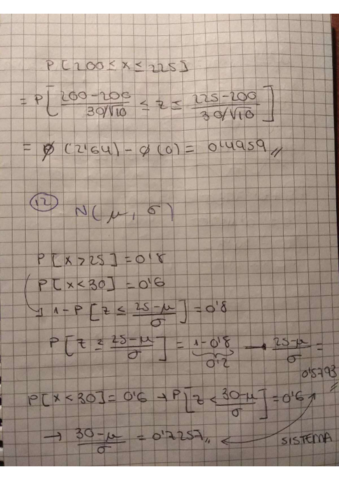 P[200≤x≤225]
= P[200-200/30/√10 ≤ z ≤ 225-200/30/√10]
= φ(2'64) - φ(0) = 0'4959//
12 N(μ, σ)
P[x>25] = 0'8
P[x<30] = 0'6
→ 1-P[z ≤ 25-μ/σ] = 0'8
P[z ≥ 25-μ/σ] = 1-0'8 → 25-μ/σ =
0'2
0'5793//
P[x<30] = 0'6 → P[z < 30-μ/σ] = 0'6
→ 30-μ/σ = 0'7257// SISTEMA